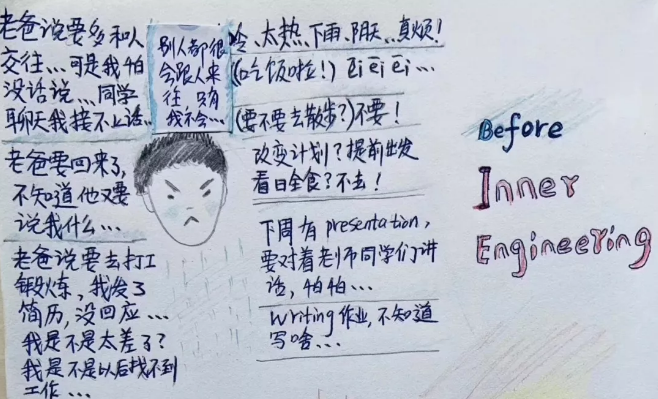 老爸说要多和人
交往...可是我怕
没话说...同学
聊天我接不上话...
老爸要回来了,
不知道他又要
说我什么...
老爸说要去打工
锻炼, 我发了
简历, 没回应...
我是不是太差了?
我是不是以后找不到
工作...
别人都很
会跟人来
往, 只有
我不会...
冷、太热、下雨、阴天...真烦!
(吃饭啦!) ēi ēi ēi...
(要不要去散步?)不要!
改变计划? 提前出发
看日全食? 不去!
下周有 presentation,
要对着老师同学们讲
话, 怕怕...
writing 作业, 不知道
写啥...
Before
Inner
Engineering